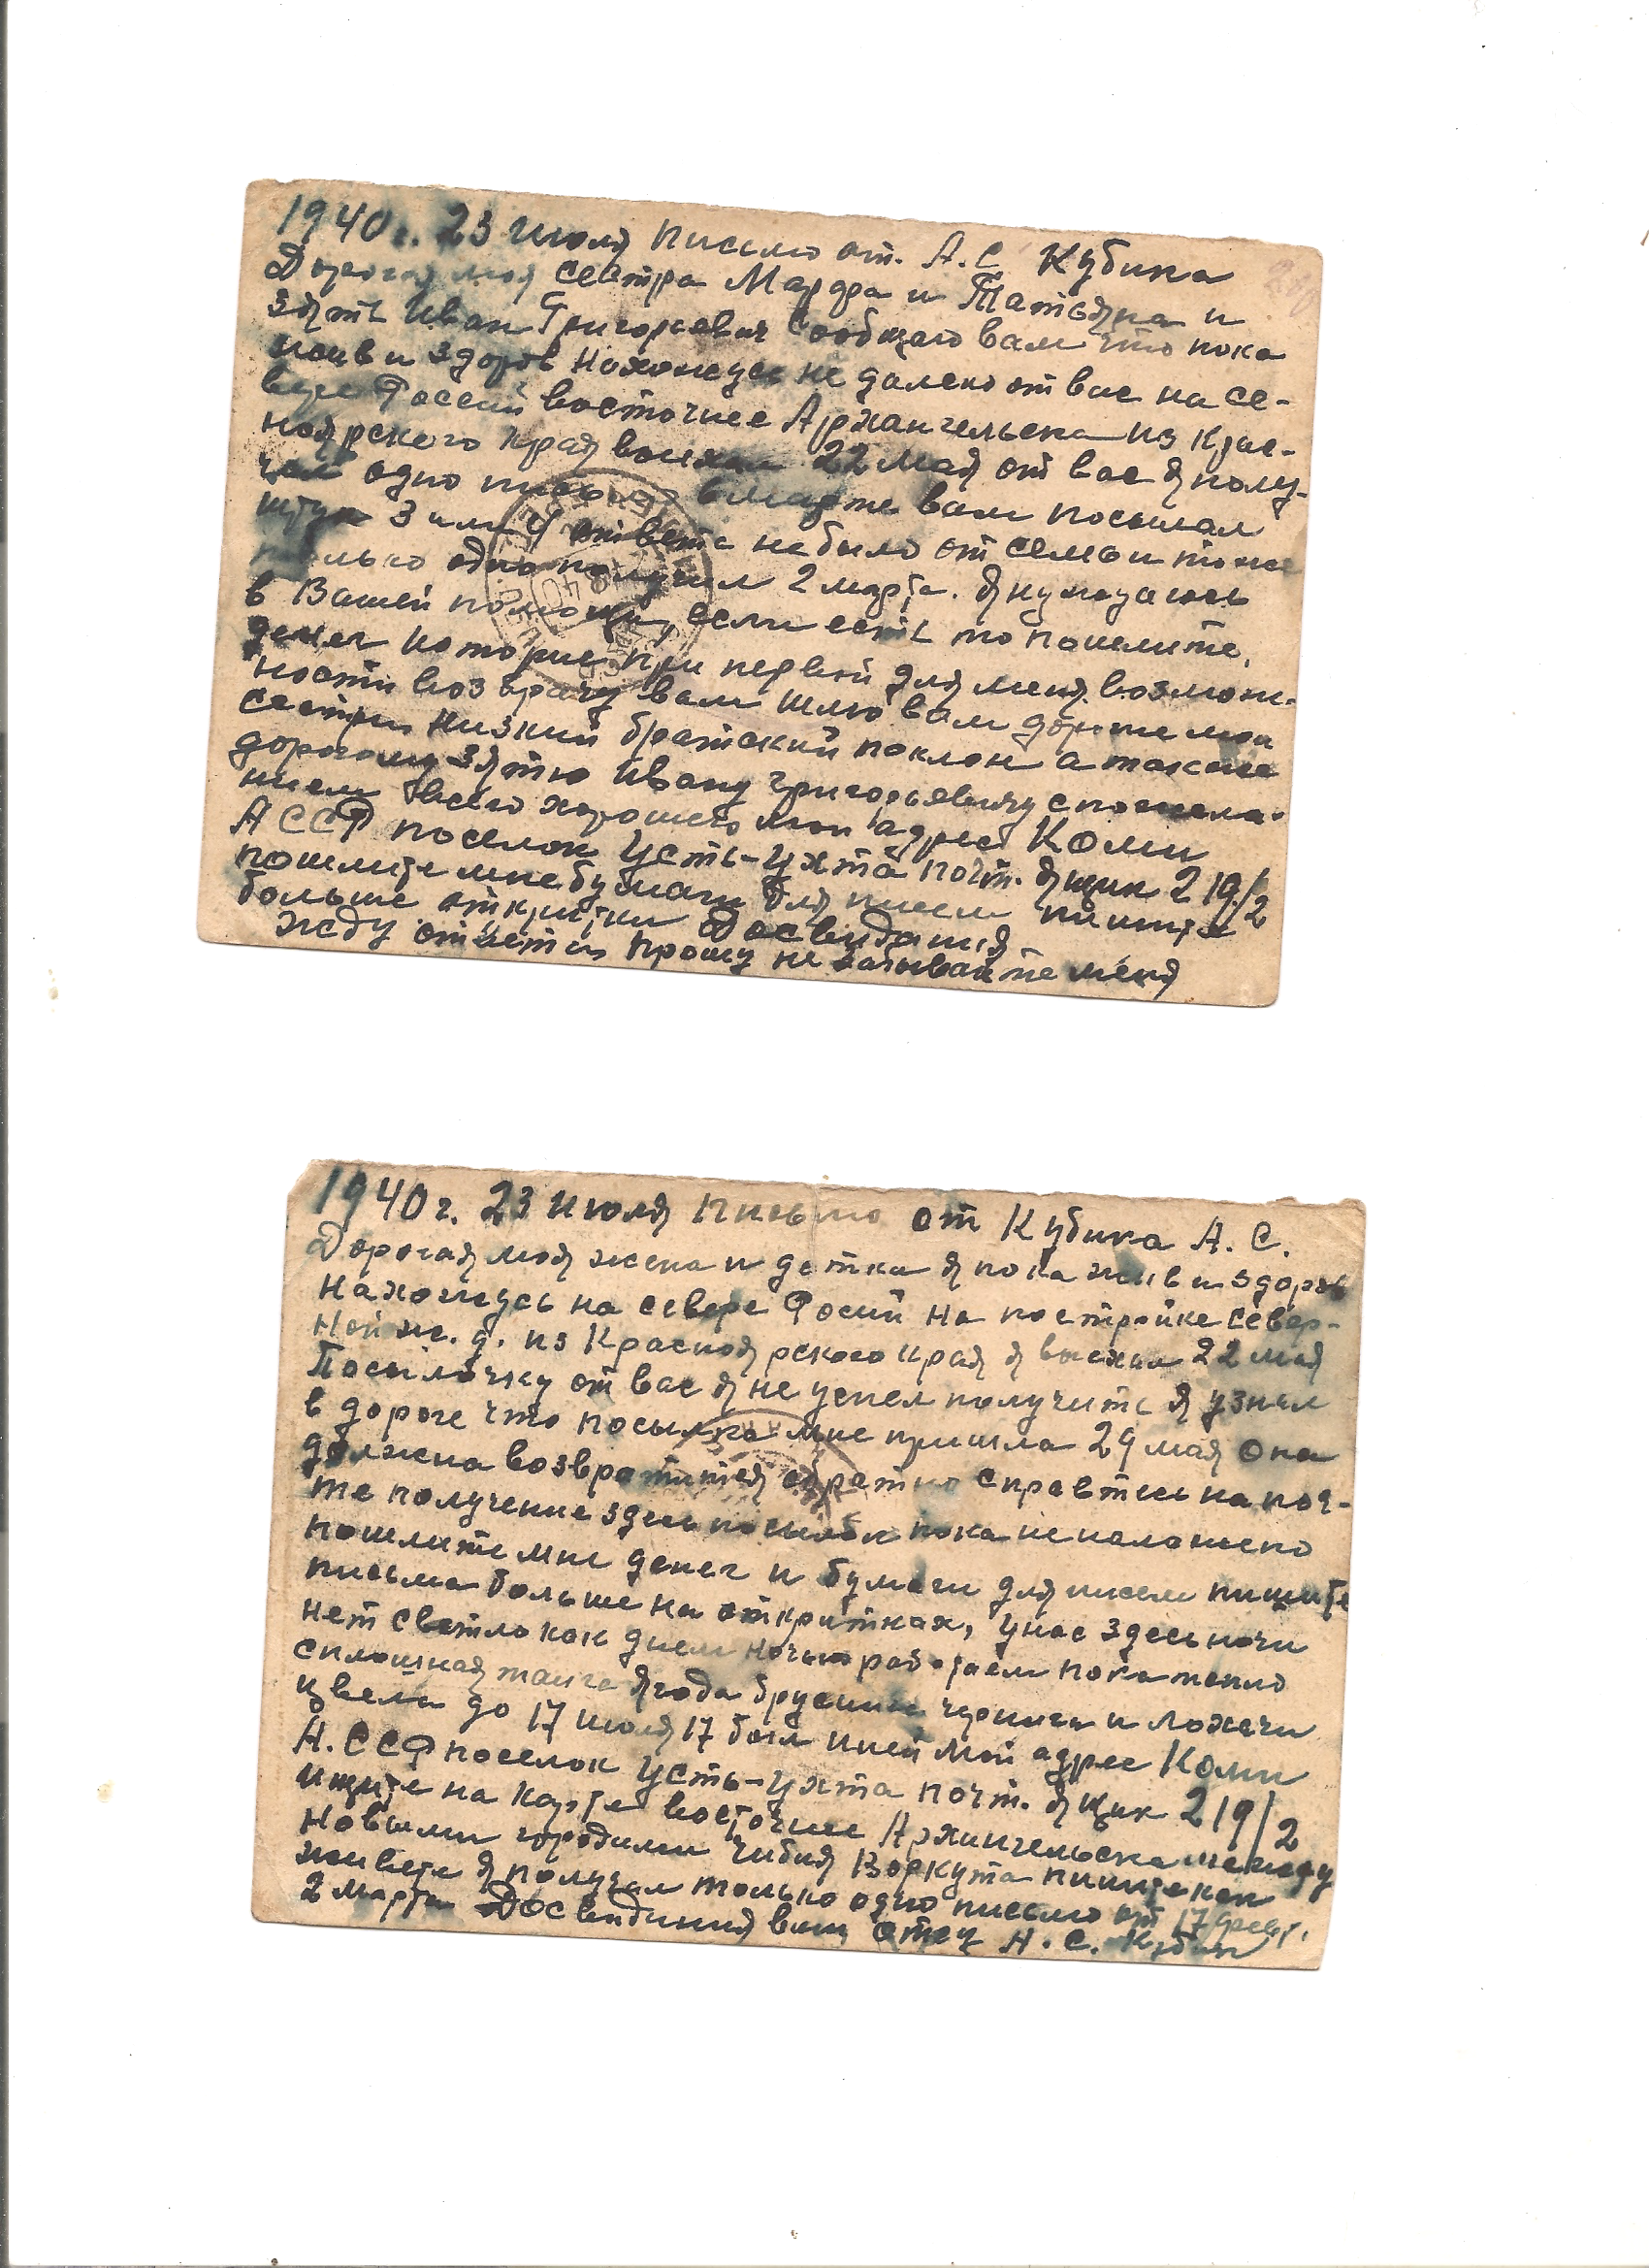 1940 г. 23 июля письмо от. А. С Кубика
Дорогая моя сестра Марфа и Татьяна и
зять Иван Григорьевич сообщаю вам что пока
жив и здоров нахожусь не далеко от вас на се-
вере Росеий восточнее Архангельска из крас-
ноярского края выехал 22 мая от вас я полу-
чил одно письмо в марте вам посылал
штук 3 или 4 ответа небыло от семьи тоже
только одно получил 2 марта. я нуждаюсь
в Вашей помощи, если есть то пошлите.
денег которие при первой для меня возмож-
ности возврачу вам шлю вам дорогие мои
сестры низкий братский поклон а также
дорогому зятю Ивану григорьевичу с пожела-
нием всего хорошего мой адрес Коми
АССР поселок Усть-Ухта почт. ящик 219/2
пошлите мне бумаги для писем пишите
больше открытки Досвидания
жду ответа прошу не забывайте меня
1940 г. 23 июля письмо от Кубика А. С.
Дорогая моя жена и детки я пока жив и здоров
нахожусь на севере Росий на постройке север-
ной ж. д. из Красноярского края я выехал 22 мая
Посылочку от вас я не успел получить я узнал
в дороге что посылка мне пришла 29 мая она
должна возвратится обратно справтесь на поч-
те получение здесь посылок пока неналожено
пошлите мне денег и бумаги для писем пишите
письма больше на открытках, у нас здесь ночи
нет светло как днем ночью работаем пока тепло
сплошная тайга ягода брусника черника и лохачи
цвели до 17 июля 17 был иней мой адрес Коми
А. ССР поселок Усть-Ухта почт. ящик 219/2
ищите на карте восточнее Архангельска между
новыми городами Чибия Воркута пишите как
живете я получал только одно письмо от 17 февр.
2 марта Досвидиния ваш отец А. С. Кубик